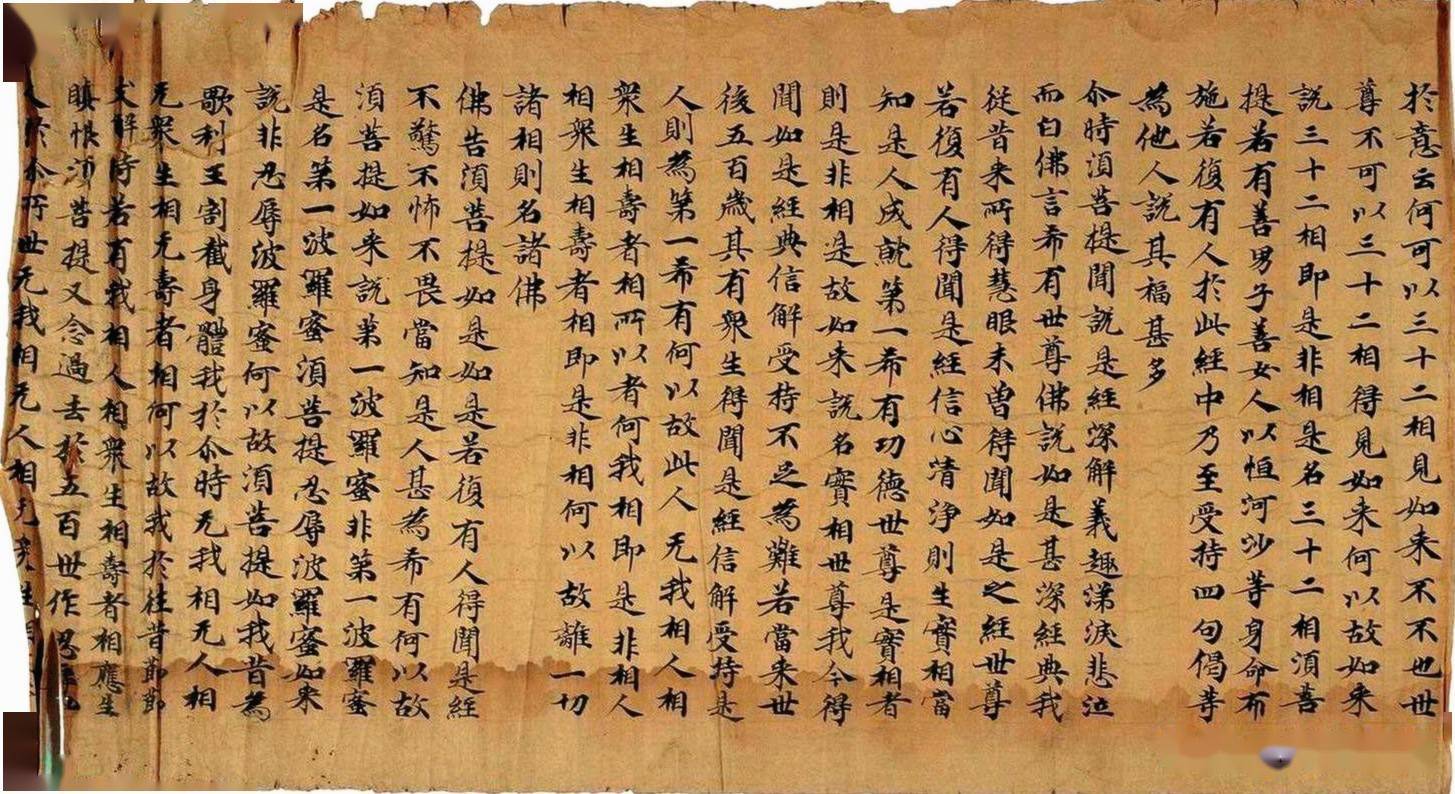 於意云何可以三十二相見如来不不也世
尊不可以三十二相得見如来何以故如来
說三十二相即是非相是名三十二相須菩
提若有善男子善女人以恒河沙等身命布
施若復有人於此經中乃至受持四句偈等
為他人說其福甚多
尒時須菩提聞說是經深解義趣涕淚悲泣
而白佛言希有世尊佛說如是甚深經典我
従昔来所得慧眼未曽得聞如是之經世尊
若復有人得聞是經信心清淨則生實相當
知是人成就第一希有功德世尊是實相者
則是非相是故如来說名實相世尊我今得
聞如是經典信解受持不乏為難若當来世
後五百歲其有衆生得聞是經信解受持是
人則為第一希有何以故此人无我相人相
衆生相壽者相所以者何我相即是非相人
相衆生相壽者相即是非相何以故離一切
諸相則名諸佛
佛告須菩提如是如是若復有人得聞是經
不驚不怖不畏當知是人甚為希有何以故
須菩提如来說第一波羅蜜非第一波羅蜜
是名第一波羅蜜須菩提忍辱波羅蜜如来
說非忍辱波羅蜜何以故須菩提如我昔為
歌利王割截身體我於尒時无我相无人相
无衆生相无壽者相何以故我於往昔節節
支解時若有我相人相衆生相壽者相應生
瞋恨須菩提又念過去於五百世作忍
人於尒所世无我相无人相无衆生